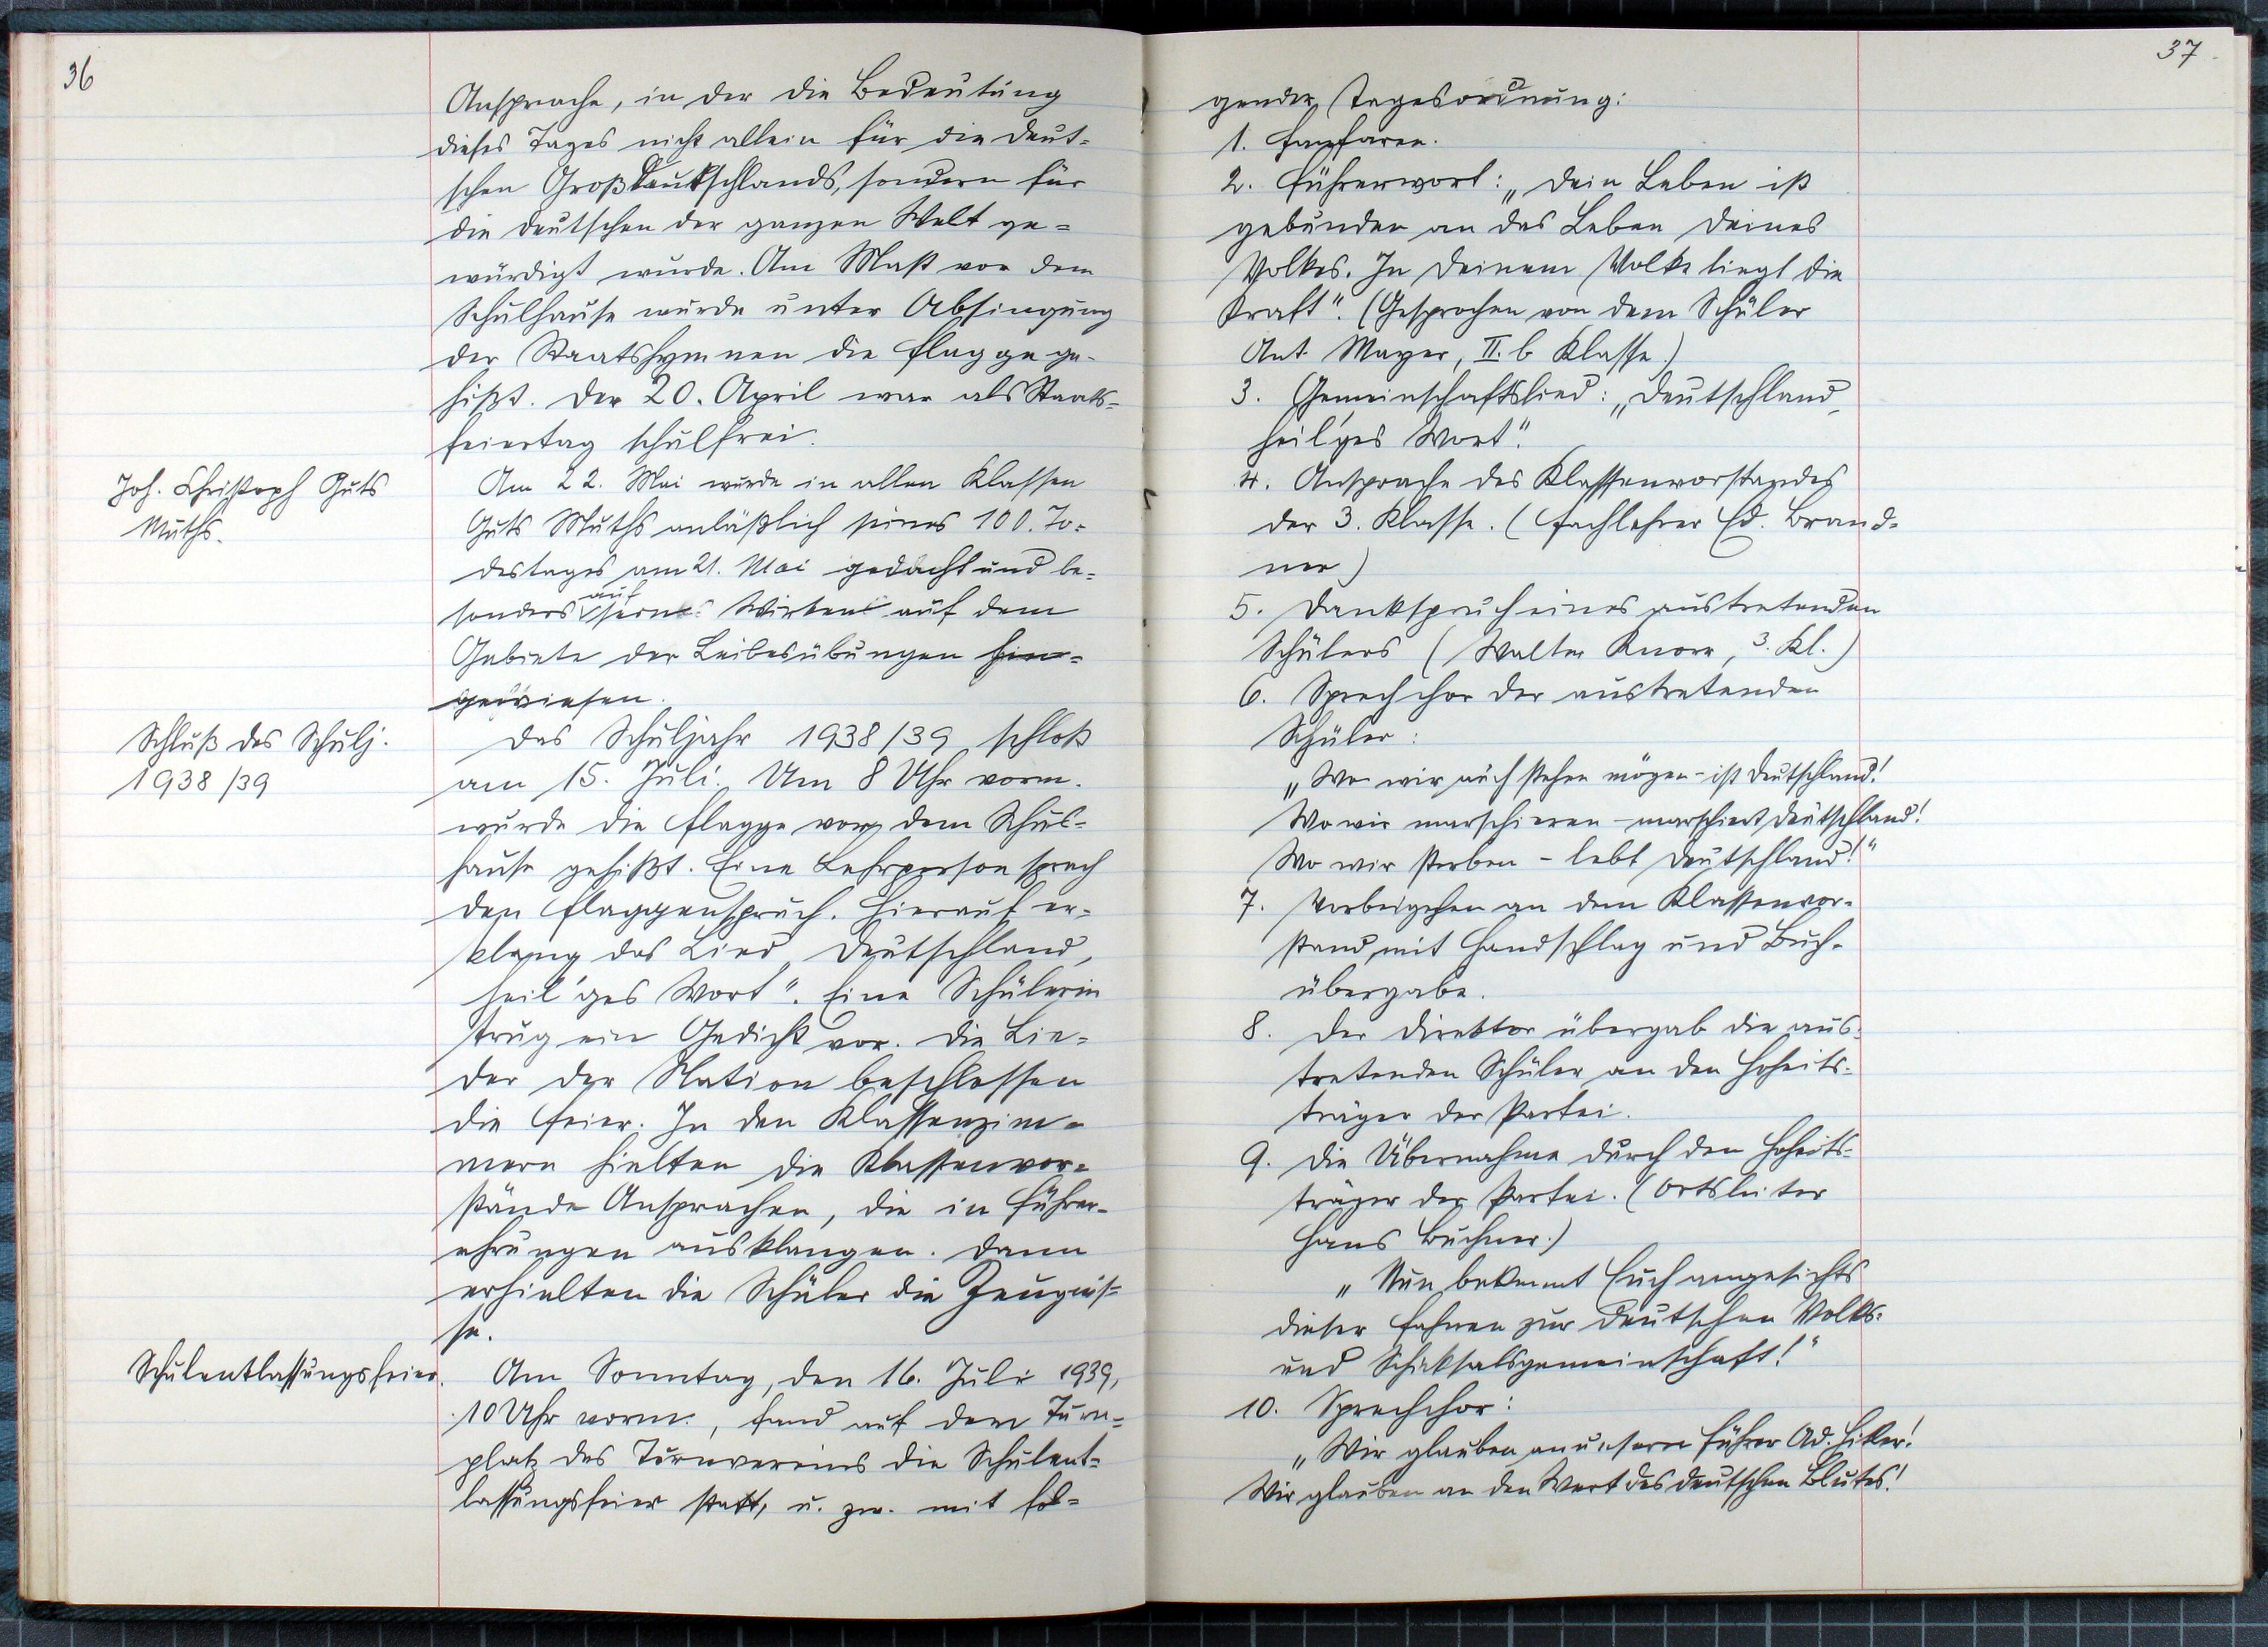 36
Ansprache, in der die Bedeutung
dieses Tages nicht allein für die Deut-
schen Großdeutschlands, sondern für
die Deutschen der ganzen Welt ge-
würdigt wurde. Am Mast vor dem
Schulhause wurde unter Absingung
der Staatshymnen die Flagge ge-
hißt. Der 20. April war als Staats-
feiertag schulfrei.
Joh. Christoph Guts
Muths.
Am 22. Mai wurde in allen Klassen
Guts Muths anläßlich seines 100. To-
destages am 21. Mai gedacht und be-
sonders auf sein Wirken auf dem
Gebiete der Leibesübungen hin-
gewiesen.
Schluß des Schulj.
1938/39
Das Schuljahr 1938/39 schloß
am 15. Juli. Um 8 Uhr vorm.
wurde die Flagge vor dem Schul-
hause gehißt. Eine Lehrperson sprach
den Flaggenspruch. Hierauf er-
klang das Lied „Deutschland,
heil'ges Wort". Eine Schülerin
trug ein Gedicht vor. Die Lie-
der der Nation beschlossen
die Feier. In den Klassenzim-
mern hielten die Klassenvor-
stände Ansprachen, die in Führer-
ehrungen ausklangen. Dann
erhielten die Schüler die Zeugnis-
se.
Schulentlassungsfeier.
Am Sonntag, den 16. Juli 1939,
10 Uhr vorm., fand auf dem Turn-
platz des Turnvereins die Schulent-
lassungsfeier statt, u. zw. mit fol-
37
gender Tagesordnung:
1. Fanfaren.
2. Führerwort: „Dein Leben ist
gebunden an das Leben deines
Volkes. In deinem Volke liegt die
Kraft". (Gesprochen von dem Schüler
Ant. Mayer, II. b Klasse.)
3. Gemeinschaftslied: „Deutschland,
heil'ges Wort".
4. Ansprache des Klassenvorstandes
der 3. Klasse. (Fachlehrer Ed. Brand-
ner)
5. Dankspruch eines austretenden
Schülers (Walter Knorr, 3. Kl.)
6. Sprechchor der austretenden
Schüler:
„Wo wir auch stehen mögen - ist Deutschland!
Wo wir marschieren - marschiert Deutschland!
Wo wir sterben - lebt Deutschland!"
7. Vorbeigehen an dem Klassenvor-
stand mit Handschlag und Buch-
übergabe.
8. Der Direktor übergab die aus-
tretenden Schüler an den Hoheits-
träger der Partei.
9. Die Übernahme durch den Hoheits-
träger der Partei. (Ortsleiter
Hans Buchner.)
„Nun bekennt Euch angesichts
dieser Fahnen zur deutschen Volks-
und Schicksalsgemeinschaft!"
10. Sprechchor:
„Wir glauben an unseren Führer Ad. Hitler!
Wir glauben an den Wert des deutschen Blutes!